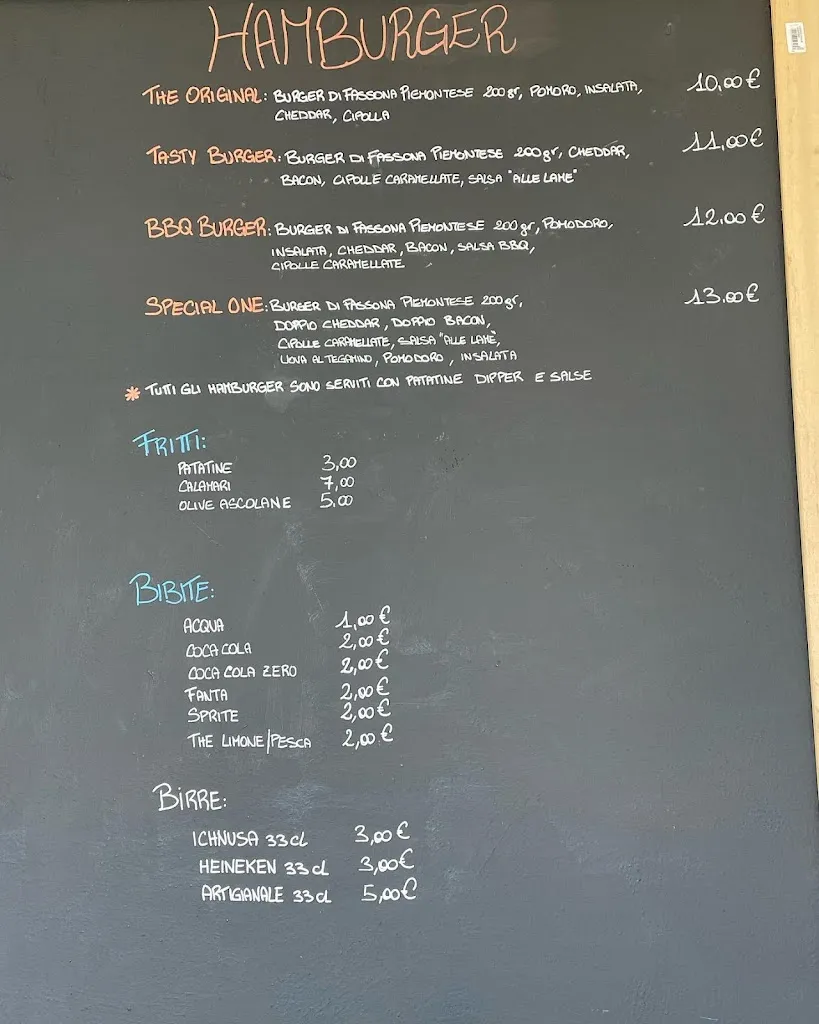 HAMBURGER
THE ORIGINAL: BURGER DI FASSONA PIEMONTESE 200gr, POMORO, INSALATA, 10,00€
CHEDDAR, CIPOLLA
TASTY BURGER: BURGER DI FASSONA PIEMONTESE 200gr, CHEDDAR, 11,00€
BACON, CIPOLLE CARAMELLATE, SALSA "ALLE LAME"
BBQ BURGER: BURGER DI FASSONA PIEMONTESE 200gr, POMODORO, 12,00€
INSALATA, CHEDDAR, BACON, SALSA BBQ,
CIPOLLE CARAMELLATE
SPECIAL ONE: BURGER DI FASSONA PIEMONTESE 200gr, 13,00€
DOPPIO CHEDDAR, DOPPIO BACON,
CIPOLLE CARAMELLATE, SALSA "ALLE LAME",
UOVA AL TEGAMINO, POMODORO, INSALATA
* TUTTI GLI HAMBURGER SONO SERVITI CON PATATINE DIPPER E SALSE
FRITTI:
PATATINE 3,00
CALAMARI 7,00
OLIVE ASCOLANE 5,00
BIBITE:
ACQUA 1,00€
COCA COLA 2,00€
COCA COLA ZERO 2,00€
FANTA 2,00€
SPRITE 2,00€
THE LIMONE/PESCA 2,00€
BIRRE:
ICHNUSA 33cl 3,00€
HEINEKEN 33cl 3,00€
ARTIGIANALE 33cl 5,00€